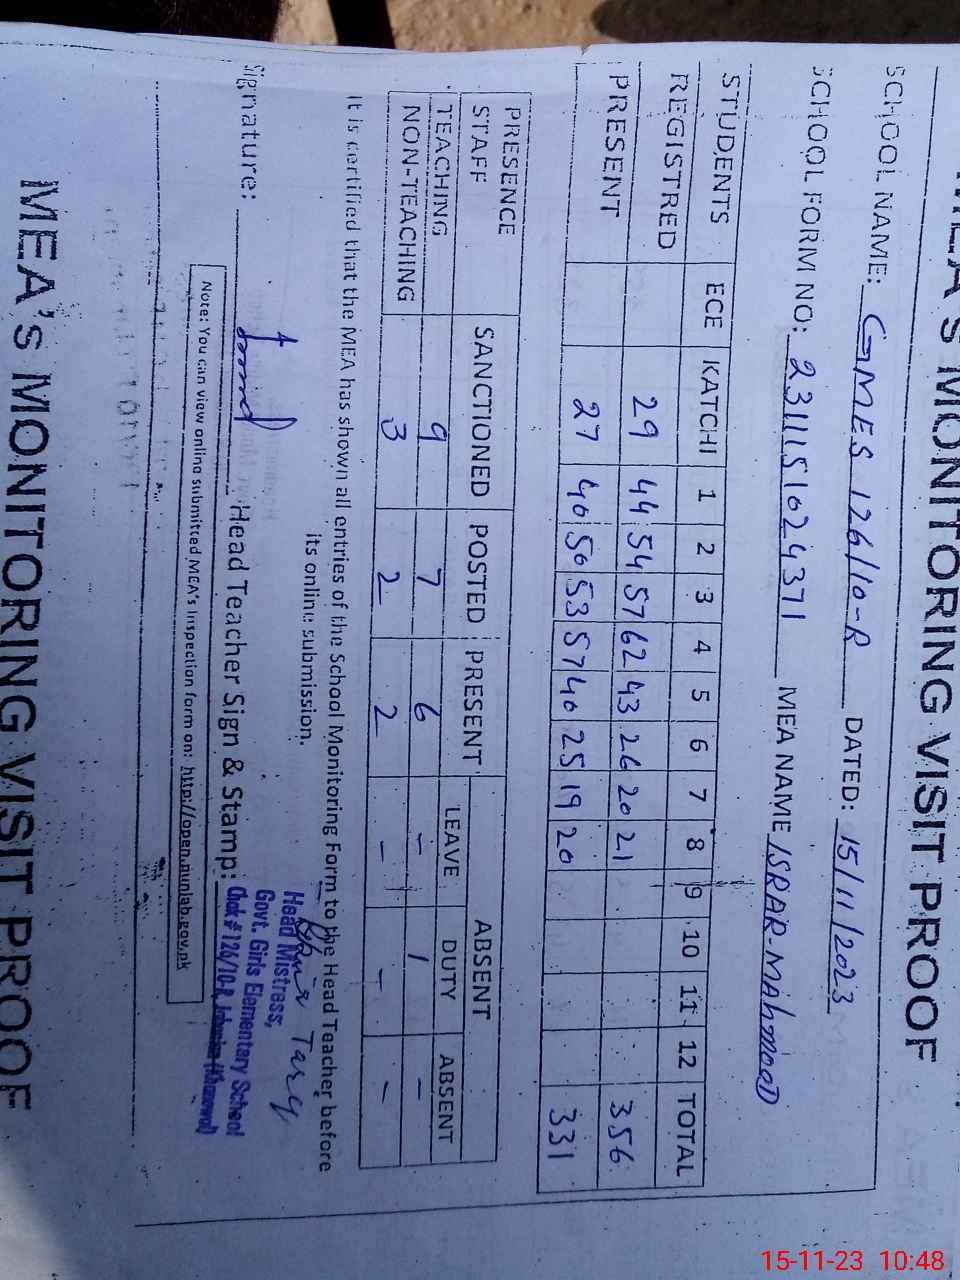 MEA's MONITORING VISIT PROOF
SCHOOL NAME: GMES 126/10-R DATED: 15/11/2023
SCHOOL FORM NO: 23111151024371 MEA NAME ISRAR-MAHMOOD
STUDENTS ECE KATCHI 1 2 3 4 5 6 7 8 9 10 11 12 TOTAL
REGISTRED 29 44 54 57 62 43 26 20 21 356
PRESENT 27 40 50 53 57 40 25 19 20 331
PRESENCE STAFF SANCTIONED POSTED PRESENT ABSENT
LEAVE DUTY ABSENT
TEACHING 9 7 6 - 1 -
NON-TEACHING 3 2 2 - - -
It is certified that the MEA has shown all entries of the School Monitoring Form to the Head Teacher before
its online submission.
Signature: Head Teacher Sign & Stamp:
Head Mistress,
Govt. Girls Elementary School
Chak # 126/10-R,
Note: You can view online submitted MEA's Inspection form on: http://open.punjab.gov.pk
MEA's MONITORING VISIT PROOF
15-11-23 10:48